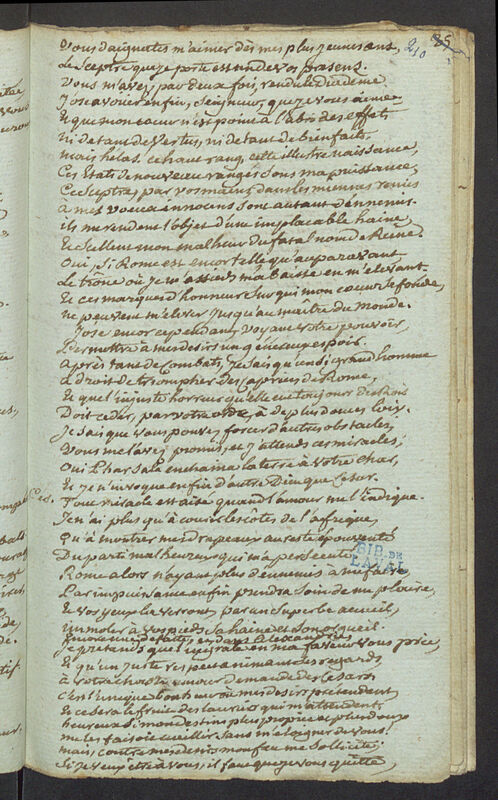 85
210
Vous daignates m'aimer dès mes plus jeunes ans,
Le Sceptre que je porte est un de vos presens.
Vous m'avez par deux fois, rendu le diademe
J'ose avouer enfin, Seigneur, que je vous aime
Et que mon coeur n'est point à l'abri des effets
ni de tant de Vertus, ni de tant de bienfaits.
mais helas, ce haut rang, cette illustre naissance,
Ces Etats de nouveau rangés sous ma puissance,
Ce Sceptre par vos mains dans les miennes remis
à mes voeux innocens sont autant d'ennemis.
ils me rendent l'objet d'une implacable haine,
Et Scellent mon malheur du fatal nom de Reine.
Oui, Si Rome est encor telle qu'auparavant
Le trône où je m'assieds m'abaisse en m'elevant.
Et ces marques d'honneur Sur qui mon coeur Se fonde,
ne peuvent m'élever jusqu'au maître du Monde.
J'ose encor cependant, voyant votre pouvoir,
Permettre à mes desirs un genereux espoir.
Après tant de Combats, je sais qu'un si grand homme
a droit de triompher des Caprices de Rome,
Et que l'injuste horreur qu'elle eut toujours des Rois
Doit céder, par votre ordre, à de plus douces loix.
Je sais que vous pouvez forcer d'autres obstacles,
Vous me l'avez promis, et j'attends ces miracles,
Oui Pharsale enchaina la terre à votre Char,
Et je n'invoque enfin d'autre Dieu que Cesar.
Tout miracle est aisé quand l'amour
Je n'ai plus qu'à courir les côtes de l'afrique,
Qu'à montrer mes drapeaux au reste épouvanté
Du parti malheureux qui m'a persécuté,
BIB. DE
LAVAL
Rome alors n'ayant plus d'ennemis à me faire
Par impuissance enfin prendra soin de me plaire,
Et vos yeux la verront, par un superbe accueil,
immoler à vos pieds Sa haine et Son orgueil.
Je pretends que l'ingrate en ma faveur vous prie,
Et qu'un juste respect animant Ses regards
à votre chaste amour demande des Cesars
C'est l'unique bonheur où mes desirs pretendent
Et ce Sera le fruit des lauriers qui m'attendent,
heureux si mon destin plus propice et plus doux
me les faisoit cueillir sans m'éloigner de vous!
mais, contre mes desirs mon feu me Sollicite;
Si je veux être à vous, il faut que je vous quitte,